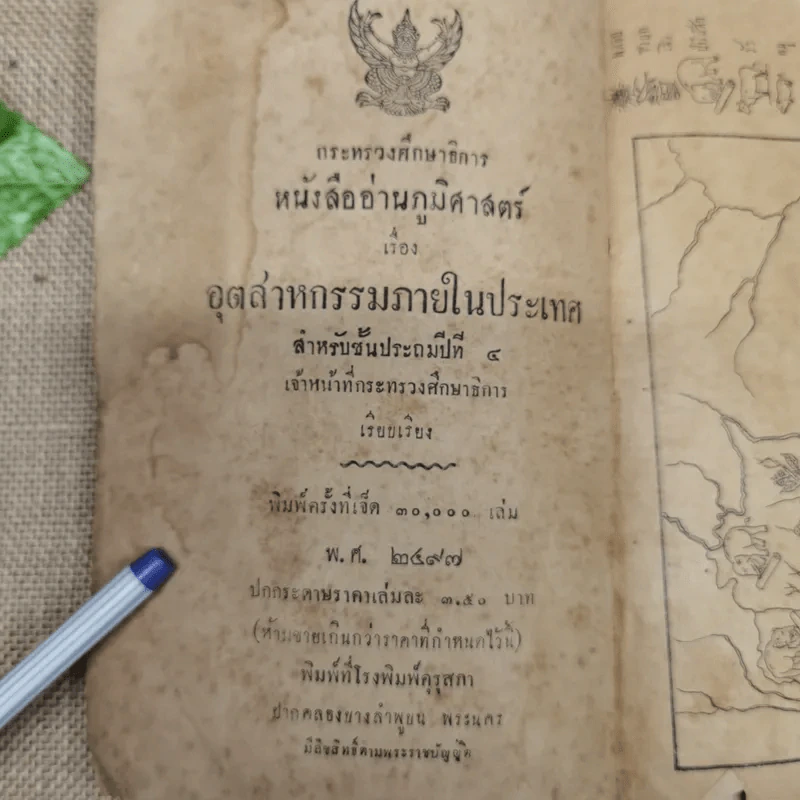 กระทรวงศึกษาธิการ
หนังสืออ่านภูมิศาสตร์
เรื่อง
อุตส่าหกรรมภายในประเทศ
สำหรับชั้นประถมปีที่ ๔
เจ้าหน้าที่กระทรวงศึกษาธิการ
เรียบเรียง
พิมพ์ครั้งที่เจ็ด ๓๐,๐๐๐ เล่ม
พ.ศ. ๒๔๙๗
ปกกระดาษราคาเล่มละ ๓.๕๐ บาท
(ห้ามขายเกินกว่าราคาที่กำหนดไว้นี้)
พิมพ์ที่โรงพิมพ์คุรุสภา
ปากคลองบางลำพูบน พระนคร
มีลิขสิทธิ์ตามพระราชบัญญัติ